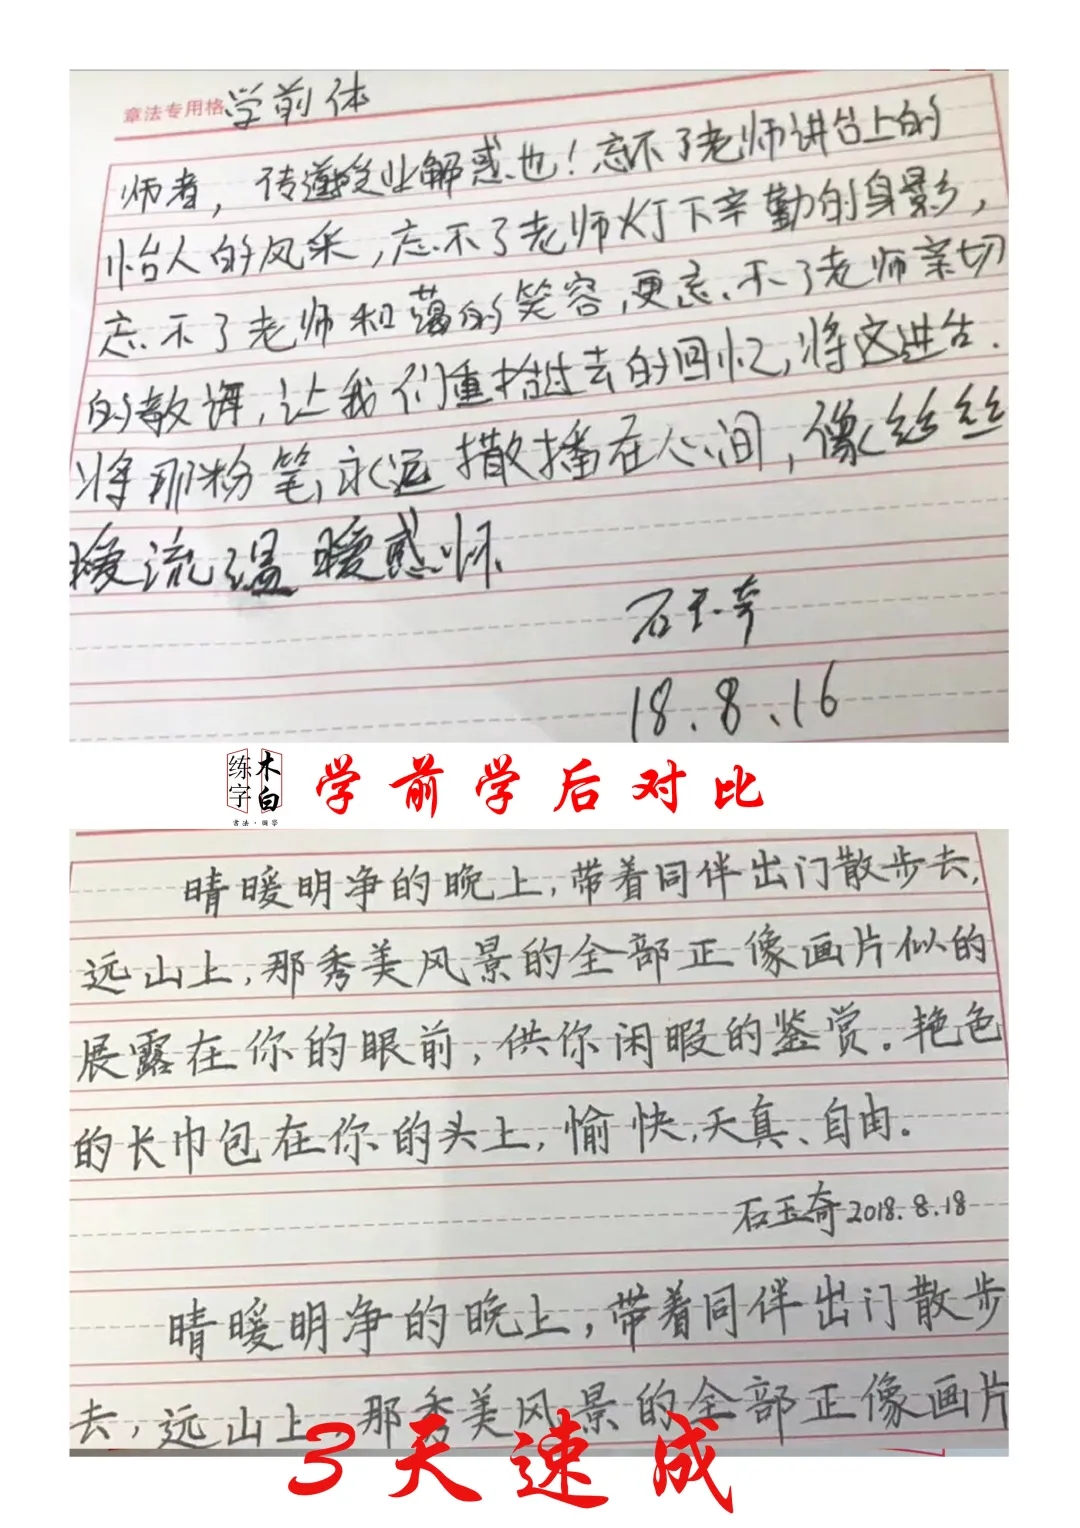 章法专用格 学前体
师者，传道授业解惑也！忘不了老师讲台上的
怡人的风采，忘不了老师灯下辛勤的身影，
忘不了老师和蔼的笑容，更忘不了老师亲切
的教诲，让我们重拾过去的回忆，将这讲台．
将那粉笔，永远撒播在心间，像丝丝
暖流温暖感怀．
石玉奇
18.8.16
木白
练字
学前学后对比
晴暖明净的晚上，带着同伴出门散步去，
远山上，那秀美风景的全部正像画片似的
展露在你的眼前，供你闲暇的鉴赏。艳色
的长巾包在你的头上，愉快，天真、自由。
石玉奇2018.8.18
晴暖明净的晚上，带着同伴出门散步
去，远山上 那秀美风景的全部正像画片
3天速成